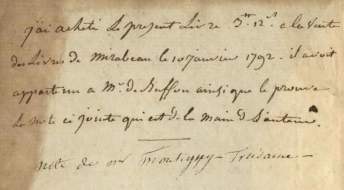 j'ai acheté le present Livre 3ᵗᵗ 12ˢ a la vente
des Livres de Mirabeau le 10 janvier 1792. il avoit
appartenu a Mʳ. de Buffon ainsi que le prouve
la note ci jointe qui est de la main d
note de mʳ Montigny-Trudaine